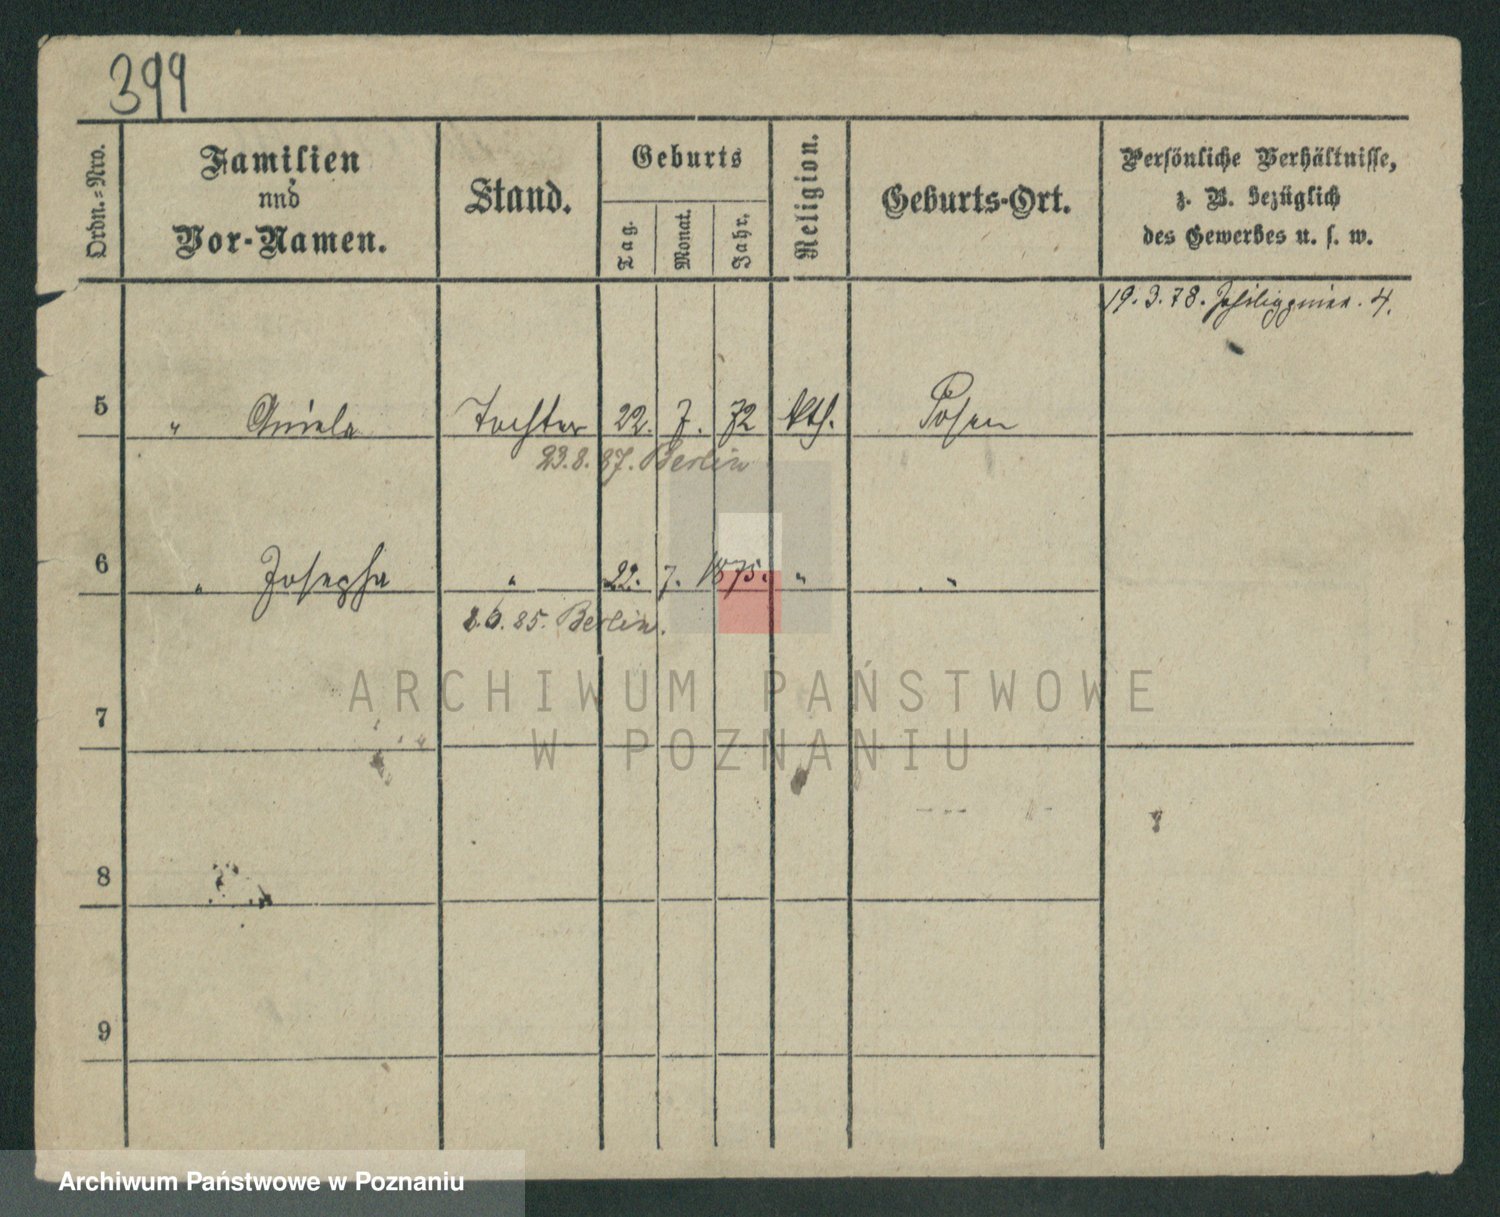 399
Ordn.-Nro.
Familien
und
Vor-Namen.
Stand.
Geburts
Tag.
Monat.
Jahr.
Religion.
Geburts-Ort.
Persönliche Verhältnisse,
z. B. bezüglich
des Gewerbes u. s. w.
19. 3. 78. 4.
5 " Aniela Tochter 22. 7. 72 kth. Posen
23. 8. 87. Berlin
6 " Josepha " 22. 7. 1875. " "
8. 6. 85. Berlin.
ARCHIWUM PAŃSTWOWE
W POZNANIU
7
8
9
Archiwum Państwowe w Poznaniu